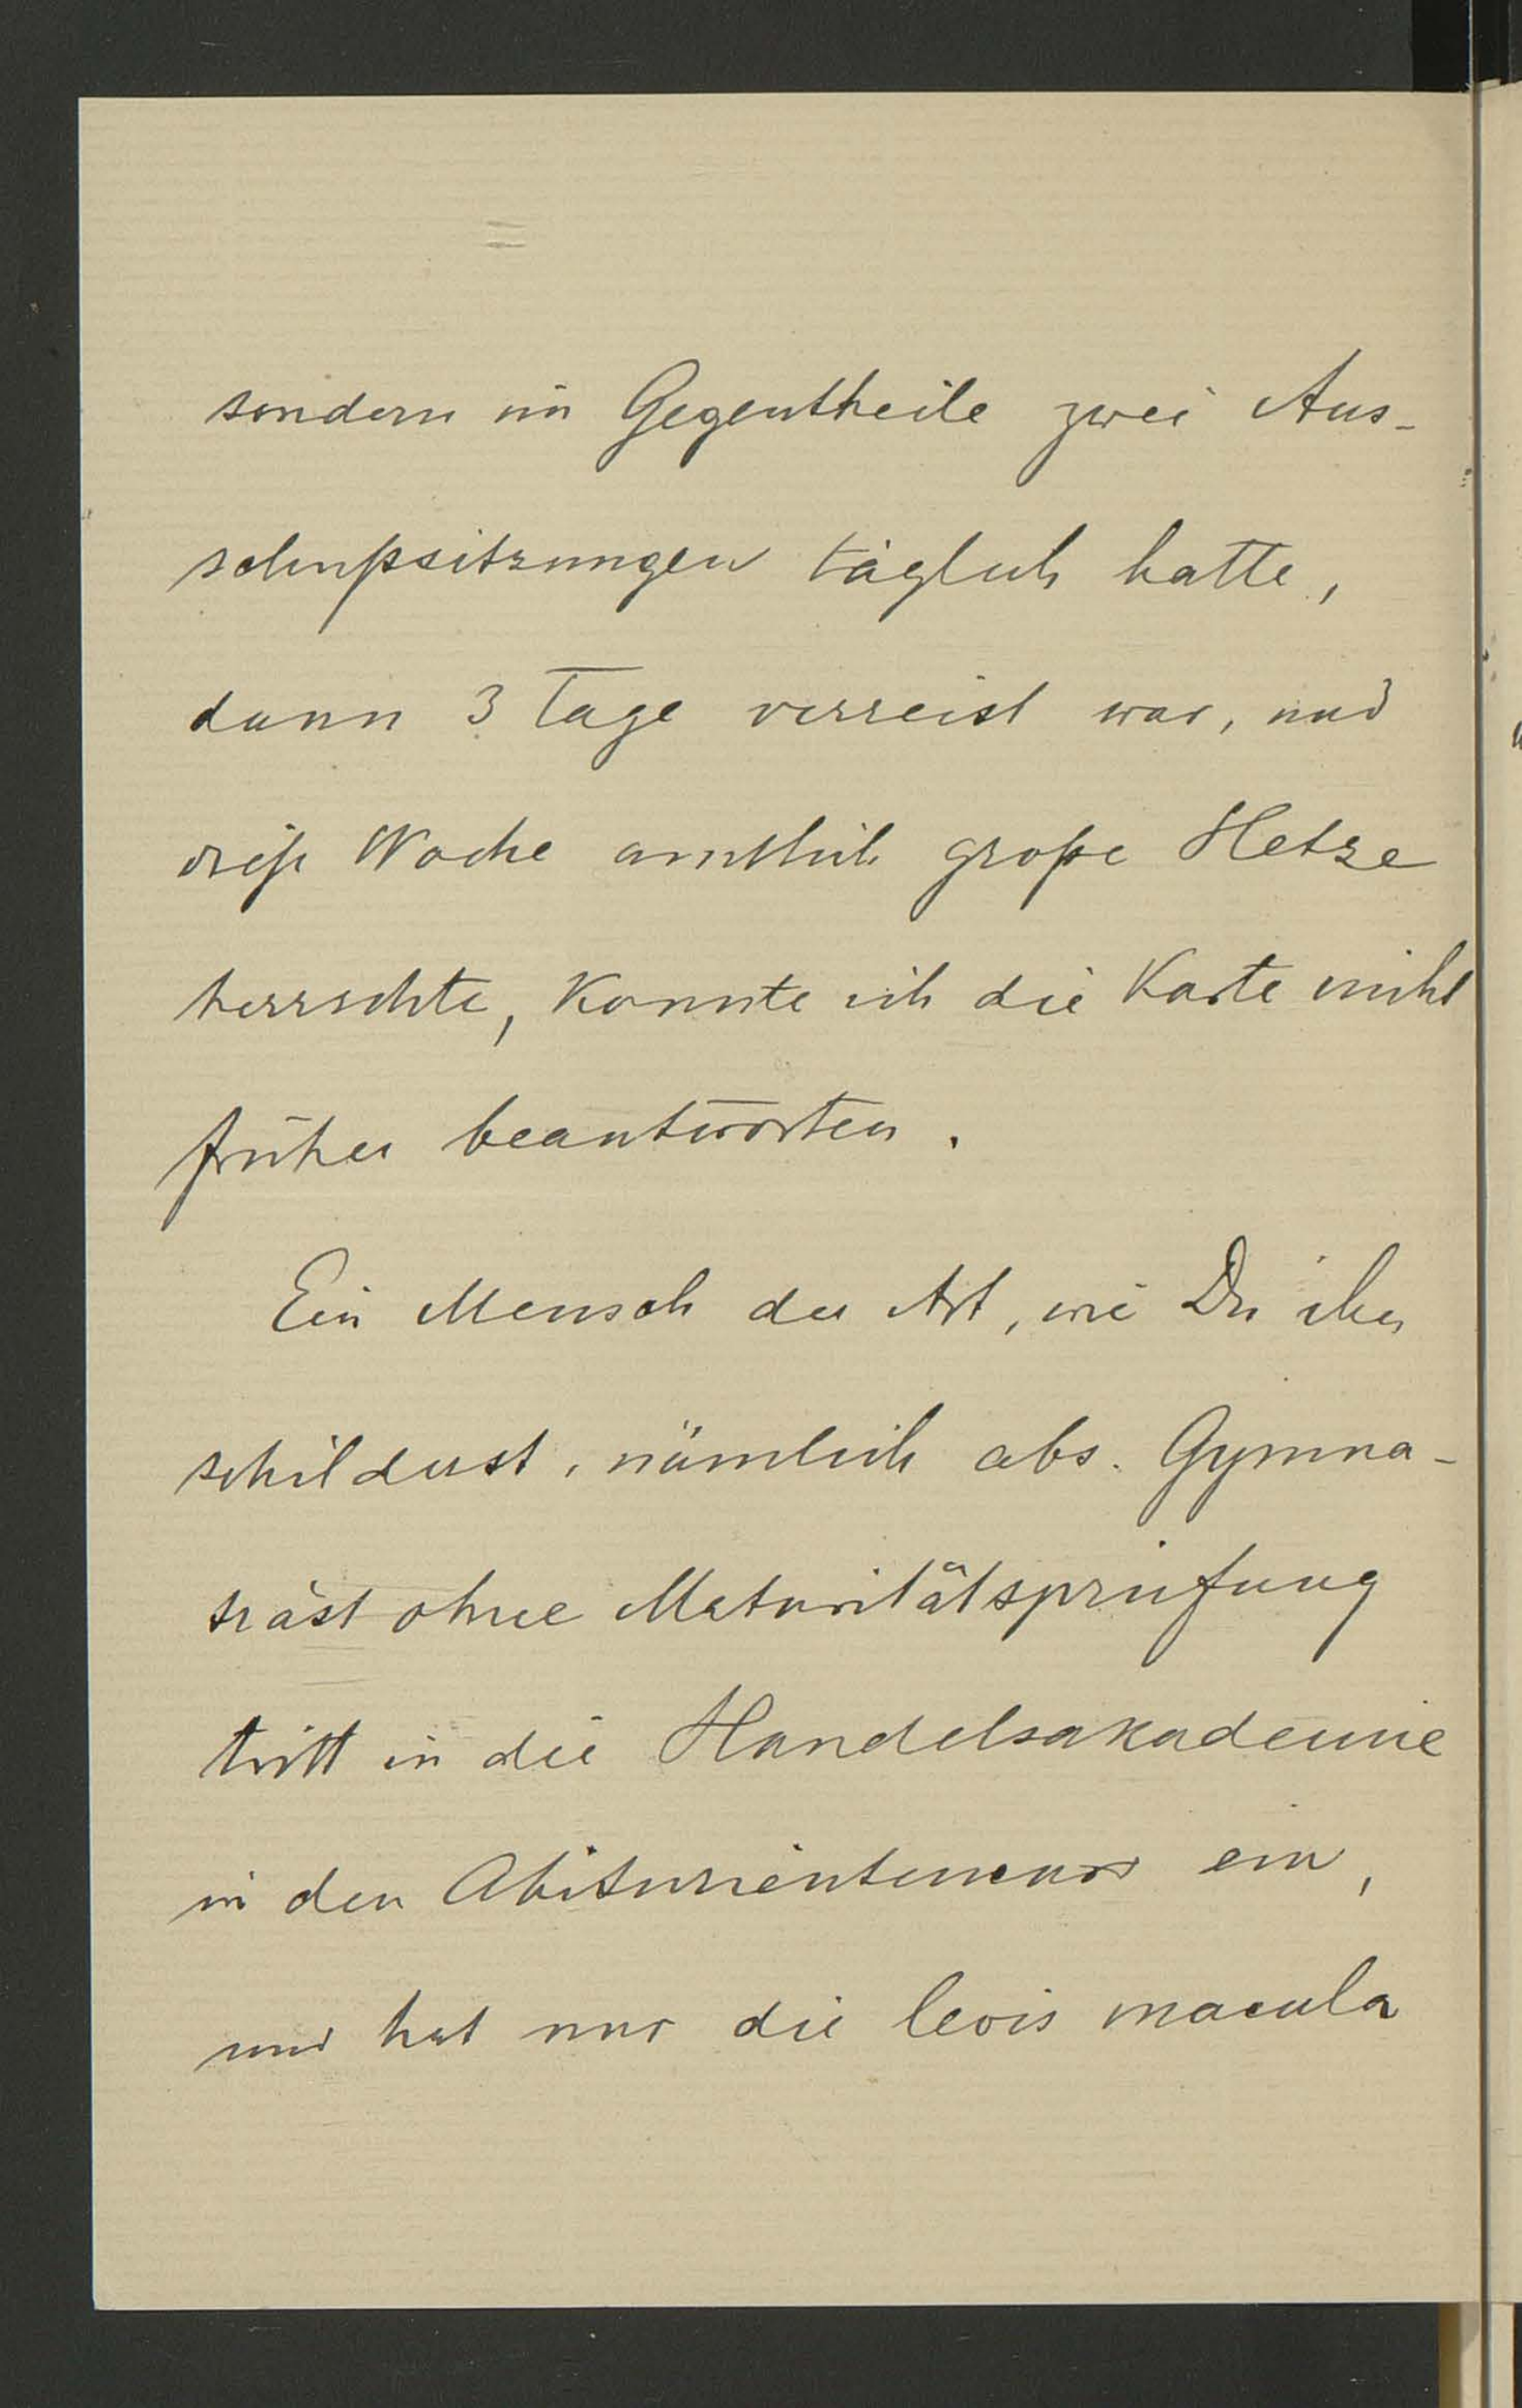 sondern im Gegentheile zwei Aus-
schußsitzungen täglich hatte,
dann 3 Tage verreist war, und
diese Woche amtlich große Hetze
herrschte, konnte ich die Karte nicht
früher beantworten.
Ein Mensch der Art, wie Du ihn
schilderst, nämlich abs. Gymna-
siast ohne Maturitätsprüfung
tritt in die Handelsakademie
in den Abiturientencurs ein,
und hat nur die levis macula